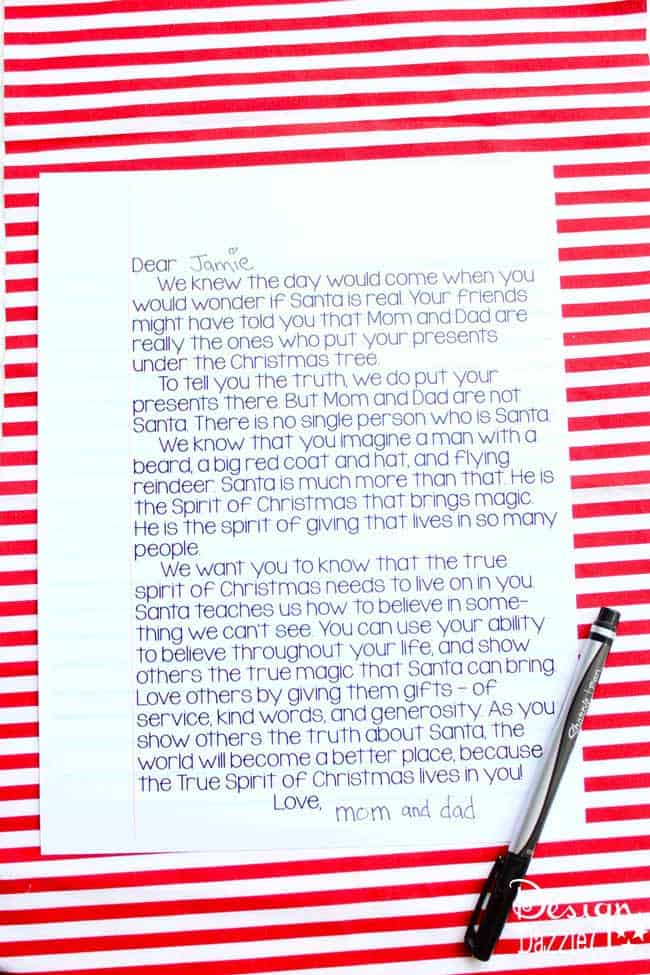 Dear Jamie
We knew the day would come when you
would wonder if Santa is real. Your friends
might have told you that Mom and Dad are
really the ones who put your presents
under the Christmas tree.
To tell you the truth, we do put your
presents there. But Mom and Dad are not
Santa. There is no single person who is Santa.
We know that you imagine a man with a
beard, a big red coat and hat, and flying
reindeer. Santa is much more than that. He is
the Spirit of Christmas that brings magic.
He is the spirit of giving that lives in so many
people.
We want you to know that the true
spirit of Christmas needs to live on in you.
Santa teaches us how to believe in some-
thing we can't see. You can use your ability
to believe throughout your life, and show
others the true magic that Santa can bring.
Love others by giving them gifts - of
service, kind words, and generosity. As you
show others the truth about Santa, the
world will become a better place, because
the True Spirit of Christmas lives in you!
Love, mom and dad
Design
Dazzle!